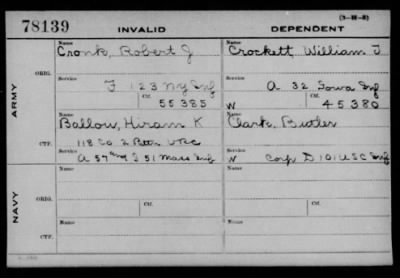 (3-H-2)
78139 INVALID DEPENDENT
Name Cronk, Robert J Name Crockett, William T
ORIG.
Service F 123 NY Inf Service A 32 Iowa Inf
Ctf. 55385 W Ctf. 45380
ARMY
Name Ballow, Hiram K Name Clark, Butler
CTF.
118 Co 2 Battn VRC
Service A 57 & I 51 Mass Inf Service W Corp D 101 USC Inf
Name Name
ORIG.
Service Ctf. Service Ctf.
NAVY
Name Name
CTF.
Service Service